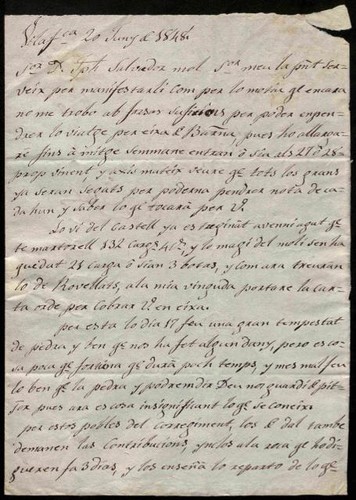 Vilafca 20 Juny de 1848.
Sor. Dn. Jph Salvador mol Sor. meu la pnt ser-
veix per manifestarli com per lo motiu qe encara
no me trobo ab forsas suficiens per poder enpen-
drer lo viatge per eixa de Barna, pues ho allarga-
re fins à mitge semmane entran ô sia als 27 ô 28
prop vinent, y axis mateix veure qe tots los grans
ya seran segats per poderne pendrer nota de ca-
da hun y saber lo qe tocarà per V.
Lo vi del Castell ya es treginat avenningut qe
te martorell 132 Cargs 4 , y lo magi del moli sen ha
quedat 21 carga ô sian 3 botas, y com ara treuran
lo de Rovellats, a la mia vinguda portare la car-
ta orde per cobrar V. en eixa.
per esta lo dia 17 feu una gran tempestat
de pedra y ben qe nos ha fet algun dany, pero es co-
sa poca qe fortuna qe durà poch temps y mes mal feu
lo ben qe la pedra y podrem dir Deu nos guardi de pit-
jor pues ara es cosa insignificant lo qe se coneix.
per estos pobles del corregiment, los de dal tambe
demanen las contribucions, ynclos a la roca qe ho di-
gueren fa 3 dias, y los enseña lo reparto de lo qe